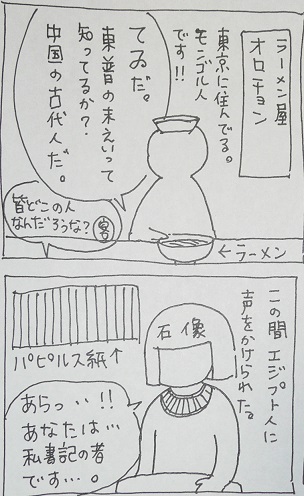 ラーメン屋
オロチョン
東京に住んでる。
モンゴル人
です!!
てゐだ。
東普の末えいって
知ってるか?
中国の古代人だ。
皆どこの人
なんだろうな?
客
←ラーメン
この間エジプト人に
声をかけられた。
石像
パピルス紙↑
あらっ…!!
あなたは…
私書記の者
です…。